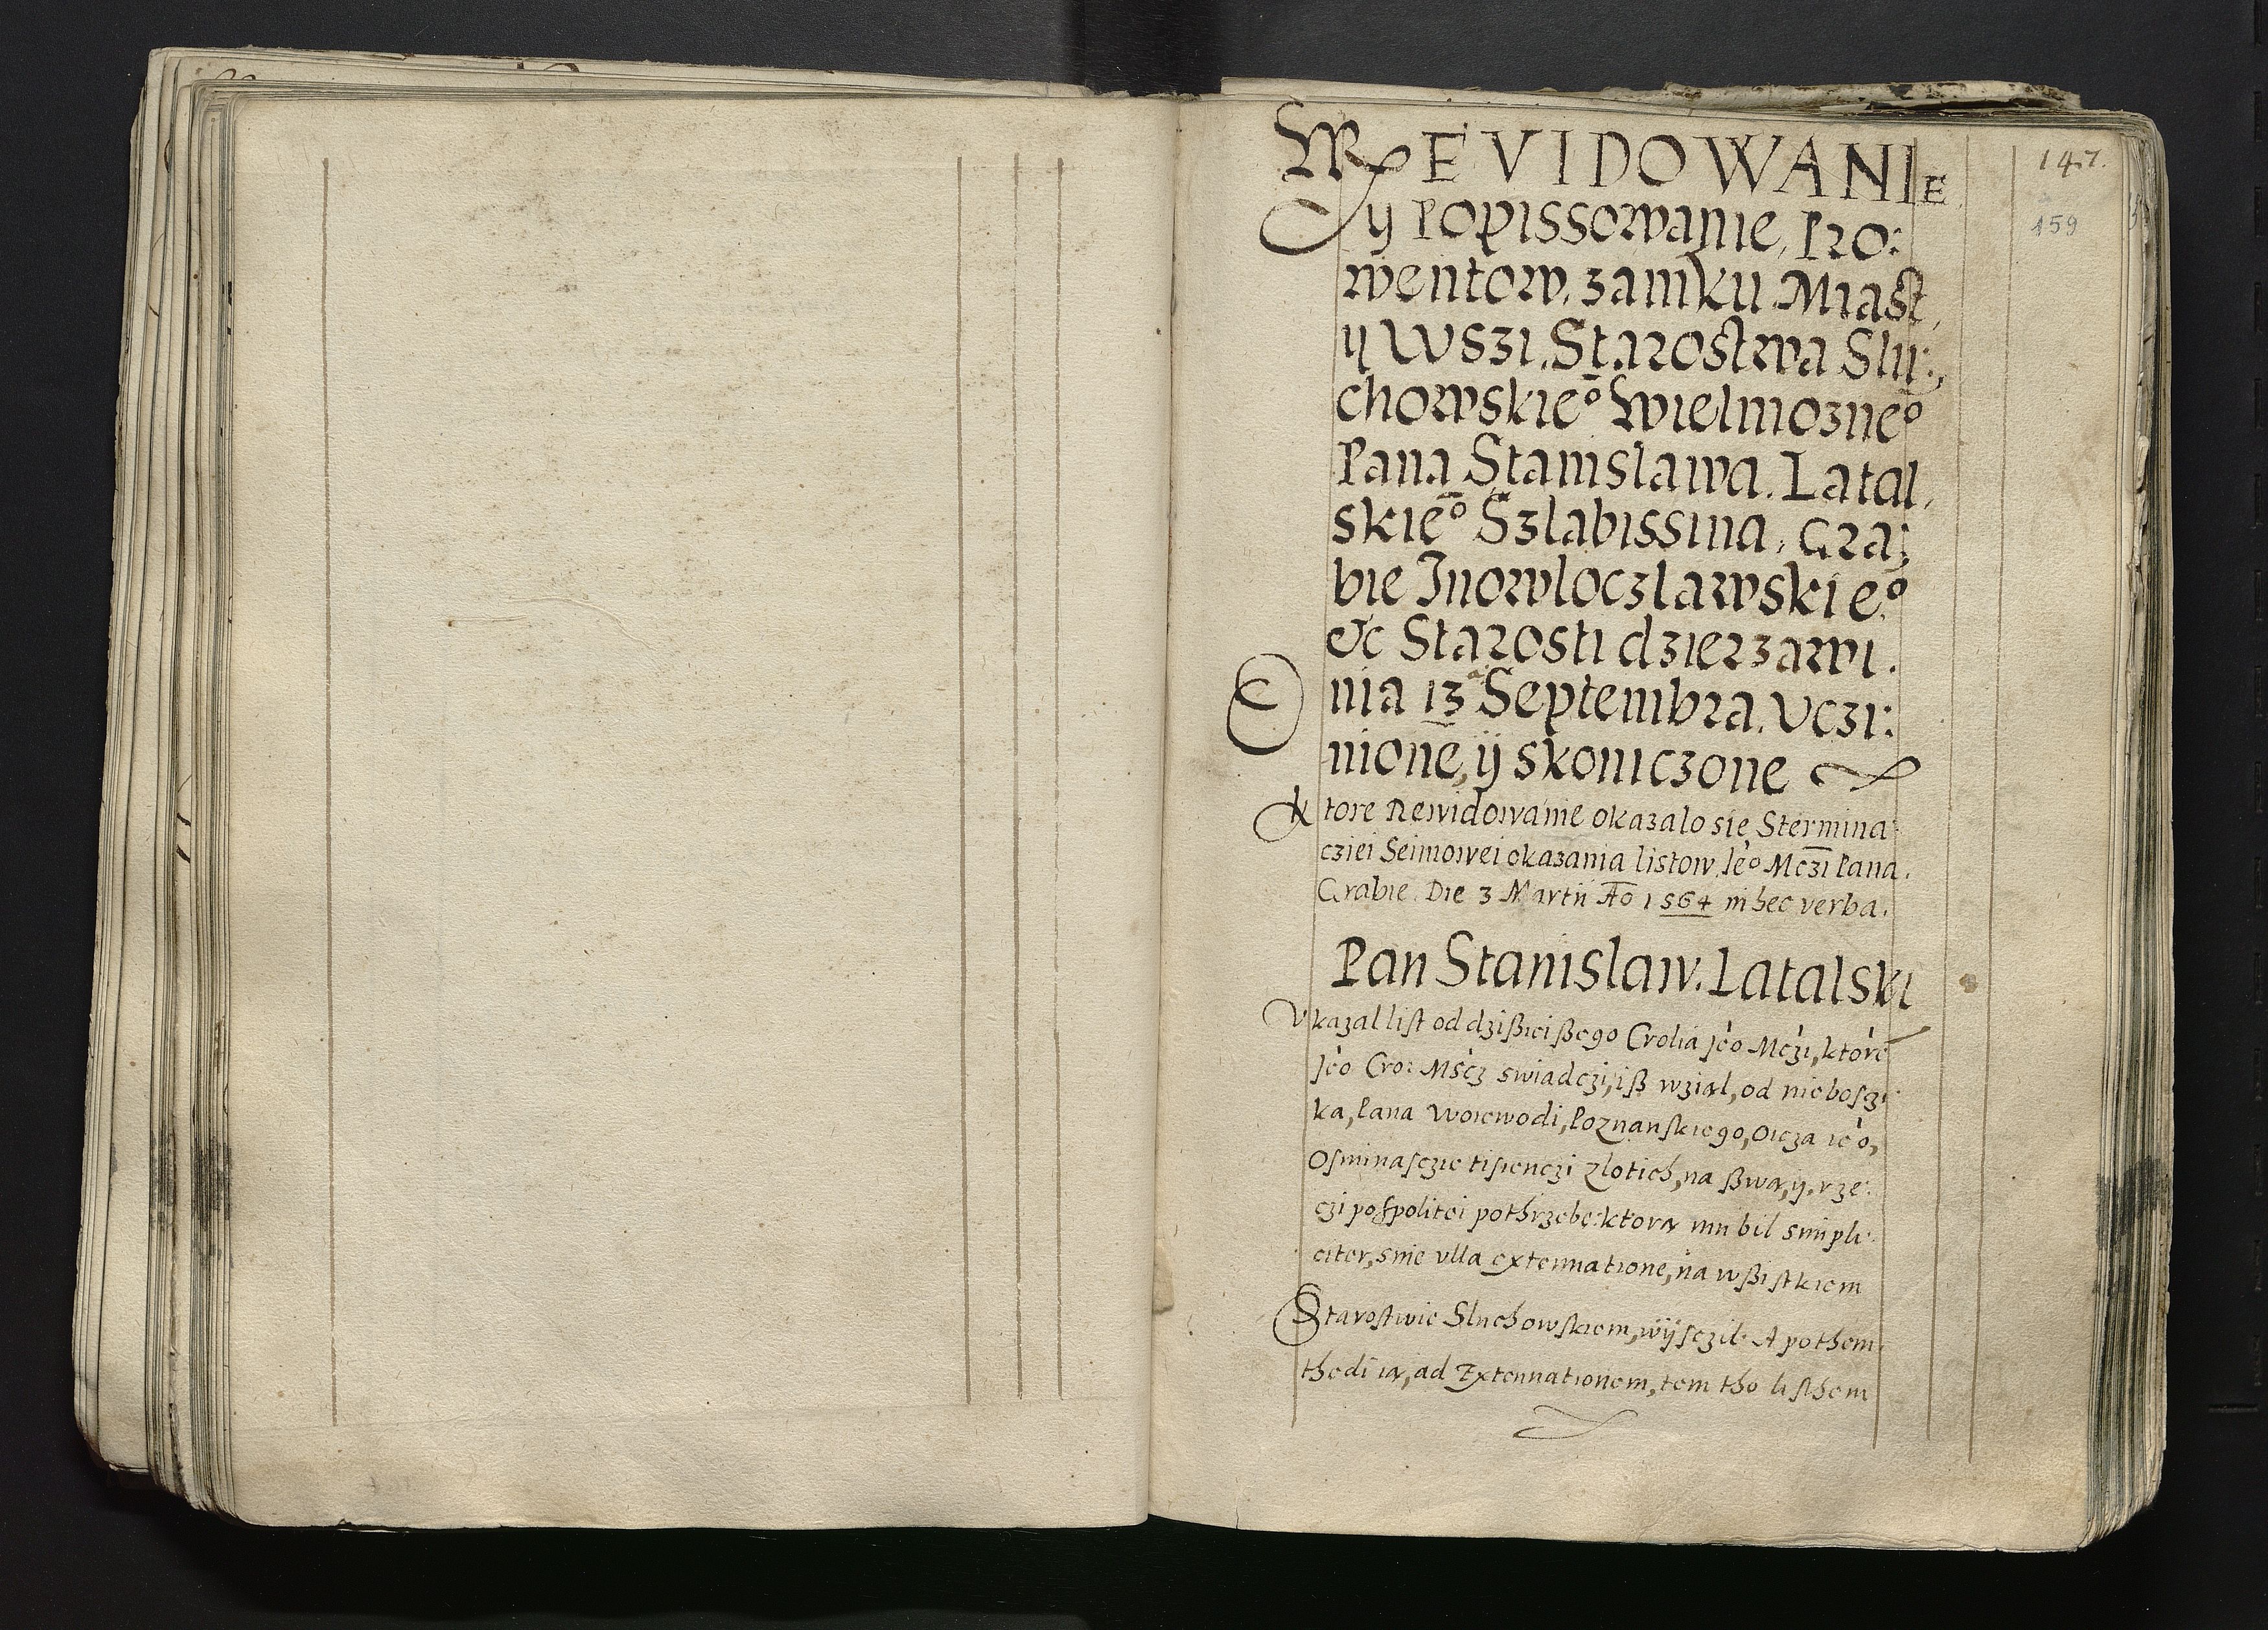 147.
159
REVIDOWANIE
ÿ Popissowanie, Pro:
wentow, zamku Miast,
ÿ Wszi, Starostwa Slu:,
chowskieº Wielmozneº
Pana Stanislawa. Latal,
skieº Szlabissina, Gra:
bie Inowloczlawskieº
&c Starosti dzierzawi.
Dnia 13ª Septembra. Vczi:
nione, ÿ skoniczone
Ktore Rewidowanie okazalo się Stermina:
cziei Seimowei okazania listow, Ieº Mczi Pana.
Grabie. Die 3 Martii Aº 1564 in hec verba.
Pan Stanislaw. Latalski
Vkazal list od dzißieißego Crolia jeo Mczi, ktore
jeo Cro: Mscz swiadczi, iß wziął, od niebosczi
ka, Pana Woiewodi, Poznanskiego, Oicza ieo,
Osminasczie tisienczi zlotich, na ßwą, ÿ, rze:
czi pospolitei pothrzebę: ktorą mu bil simpli:
citer, sine vlla extenuatione, na wßistkiem
Starostwie Sluchowskiem, wijsczil. A pothem.
thedi ią, ad Extenuationem, tem tho listhem